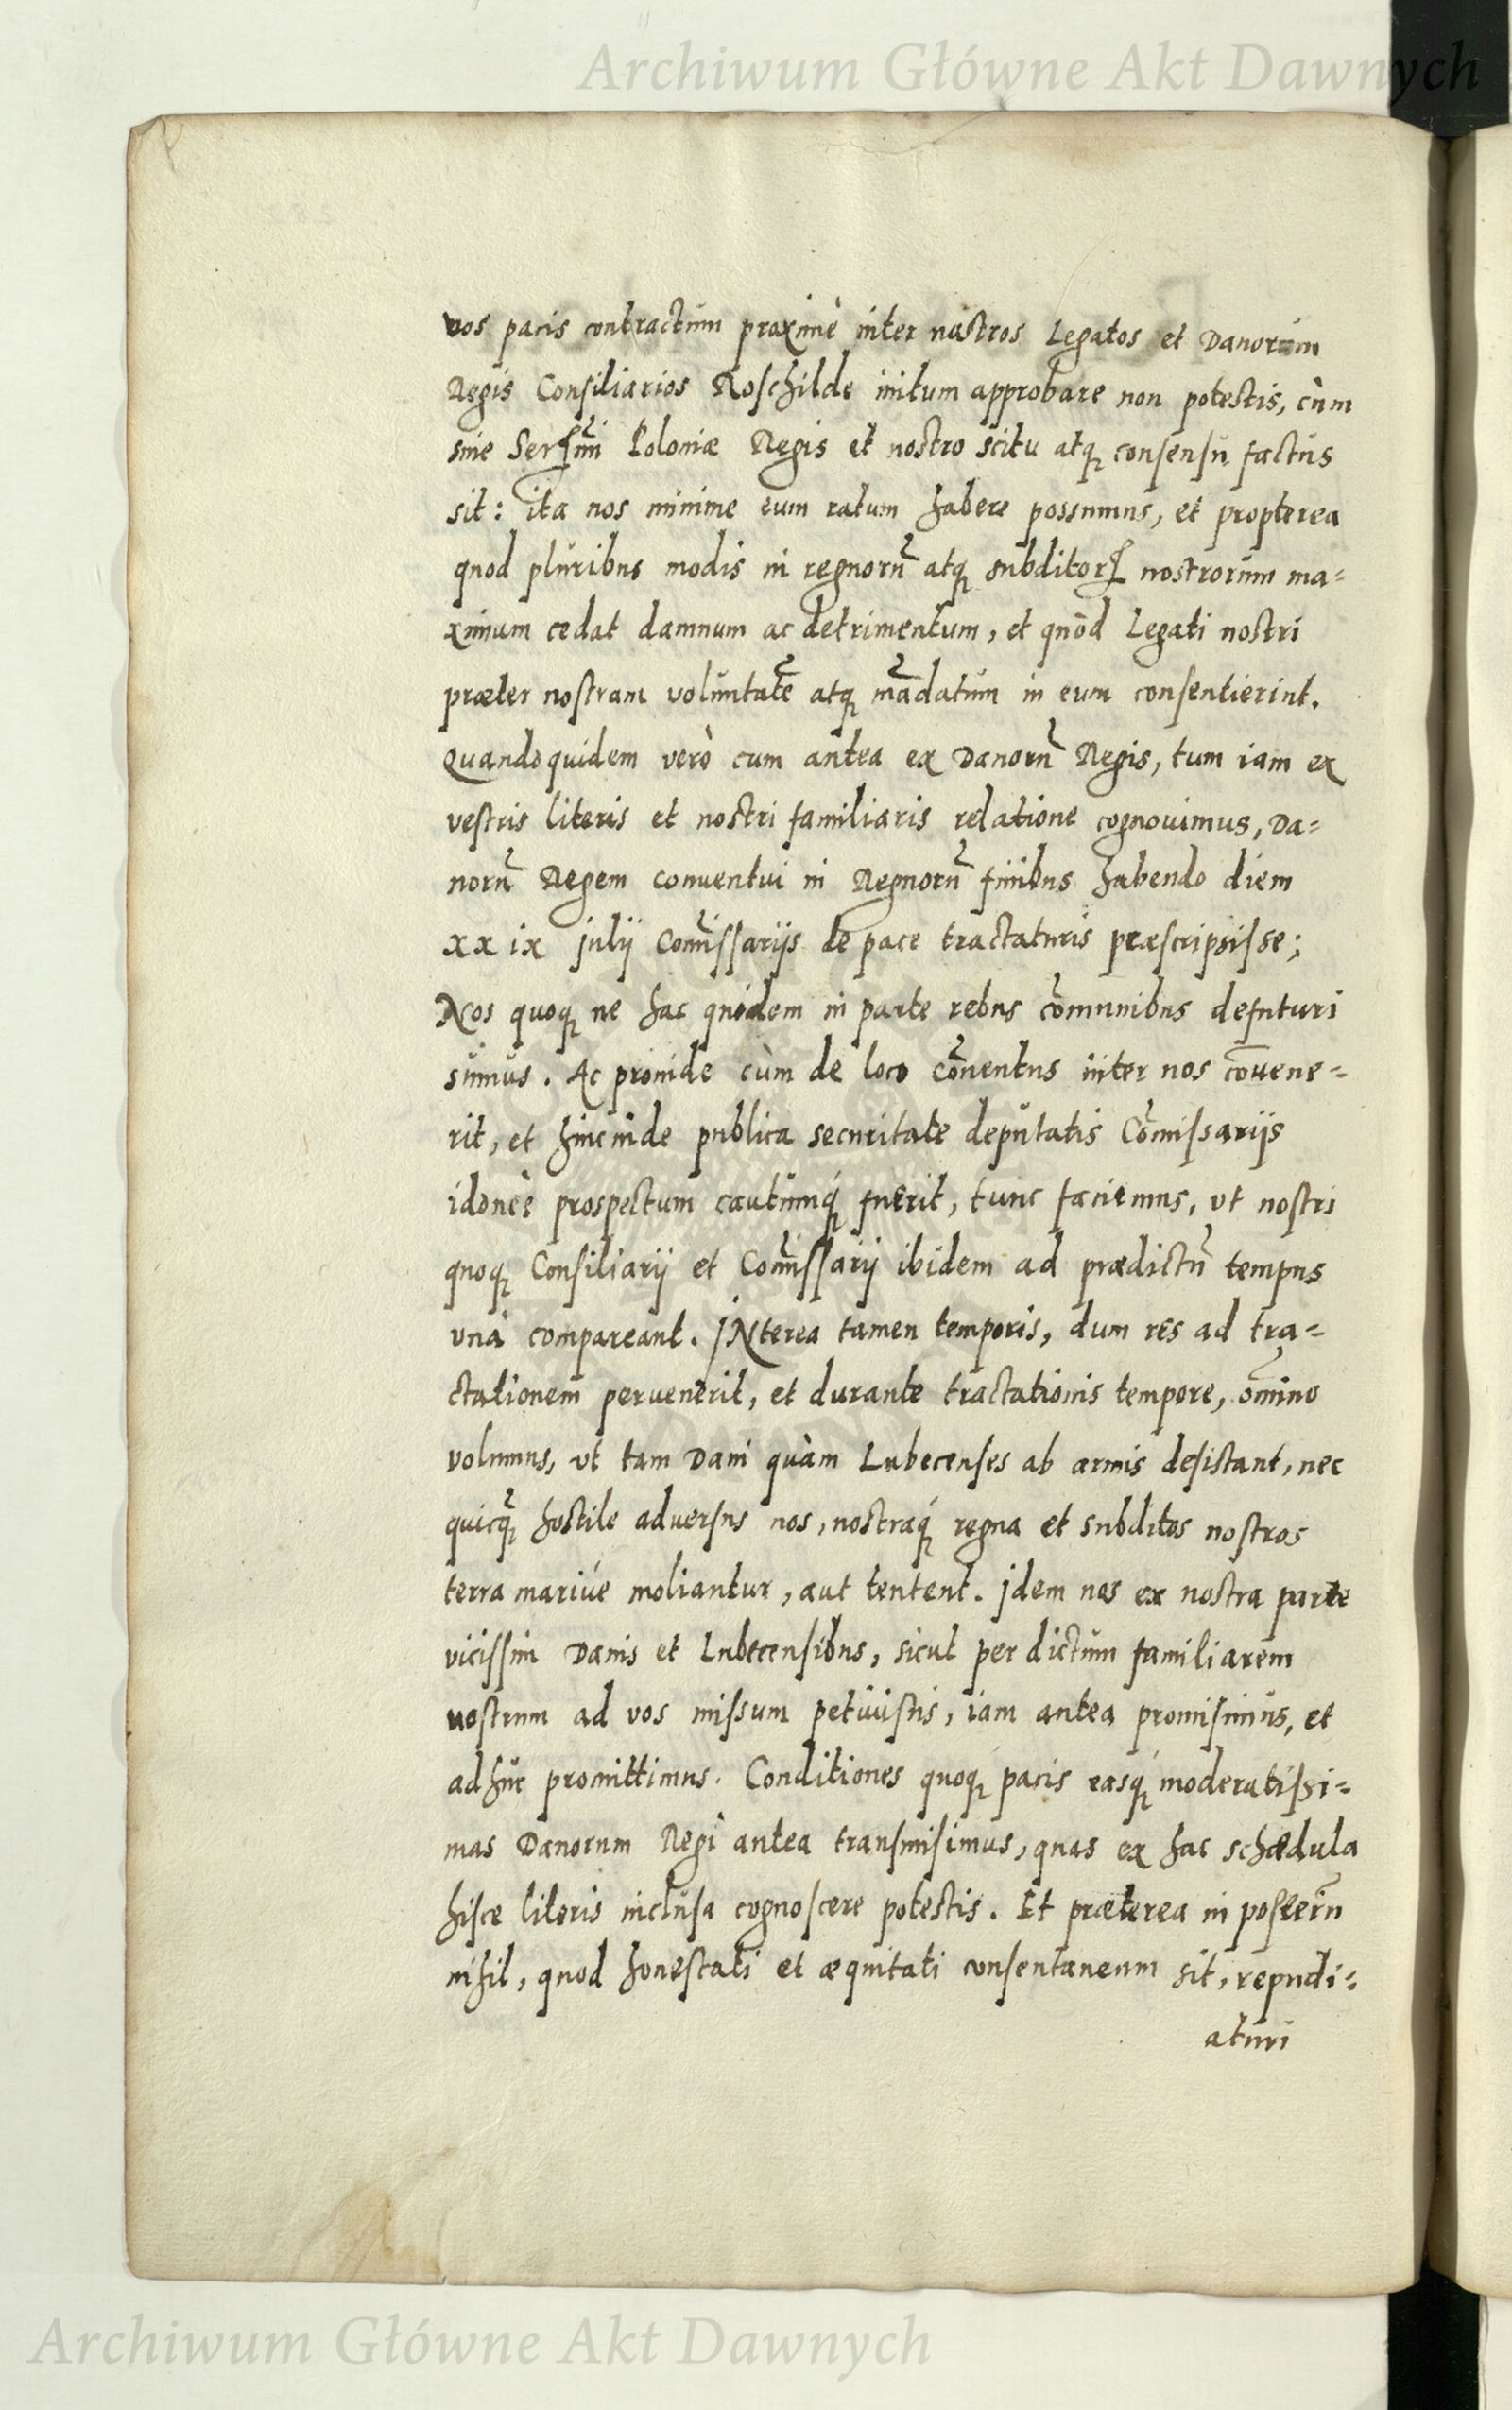 Archiwum Główne Akt Dawnych
vos pacis contractum proximè inter nostros Legatos et Danorum
Regis Consiliarios Roschilde initum approbare non potestis, cùm
sine Serẽmi Poloniæ Regis et nostro scitu atq consensu factus
sit: ita nos minime eum ratum habere possumus, et propterea
quod pluribus modis in regnorũ atq subditorꝝ nostrorum ma=
ximum cedat damnum ac detrimentum, et quòd Legati nostri
præter nostram voluntatẽ atq mãdatum in eum consentierint.
Quandoquidem verò cum antea ex Danorũ Regis, tum iam ex
vestris literis et nostri familiaris relatione cognouimus, Da=
norũ Regem conuentui in Regnorũ finibus habendo diem
xxix julij Com̃issarijs de pace tractaturis præscripsisse;
Nos quoq ne hac quidem in parte rebus cõmunibus defuturi
sumus. Ac proinde cùm de loco cõnentus inter nos cõuene=
rit, et hincinde publica securitate deputatis Cõmissarijs
idoneè prospectum cautumq́ fuerit, tunc faciemus, vt nostri
quoq Consiliarij et Com̃issarij ibidem ad prædictũ tempus
vnà compareant. INterea tamen temporis, dum res ad tra=
ctationem peruenerit, et durante tractationis tempore, om̃ino
volumus, vt tam Dani quàm Lubecenses ab armis desistant, nec
quicq̃ hostile aduersus nos, nostraq́ regna et subditos nostros
terra mariúe moliantur, aut tentent. jdem nos ex nostra parte
vicissim Danis et Lubecensibus, sicut per dictum familiarem
nostrum ad vos missum petiuistis, iam antea promisimus, et
adhuc promittimus. Conditiones quoq́ pacis easq́ moderatissi=
mas Danorum Regi antea transmisimus, quas ex hac schædula
hisce literis inclusa cognoscere potestis. Et præterea in posterũ
nihil, quod honestati et æquitati consentaneum sit, repudi=
aturi
Archiwum Główne Akt Dawnych